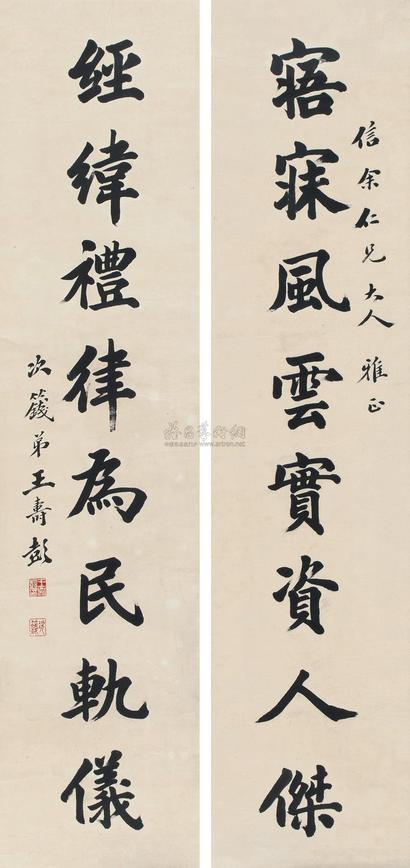 信余仁兄大人 雅正
寤寐風雲實資人傑
經緯禮律為民軌儀
次籛弟王壽彭
www.artron.net